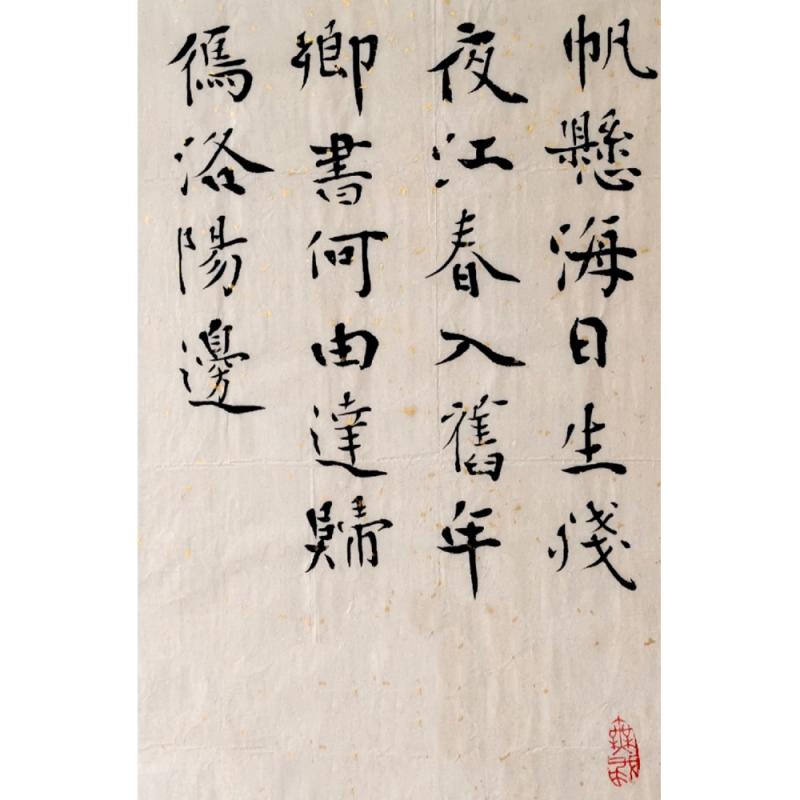 帆懸海日生殘
夜江春入舊年
鄉書何由達歸
鴈洛陽邊